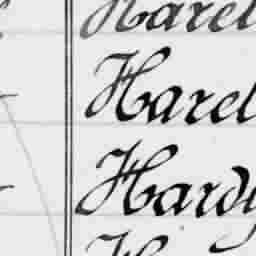 Harel
Harel
Hardy